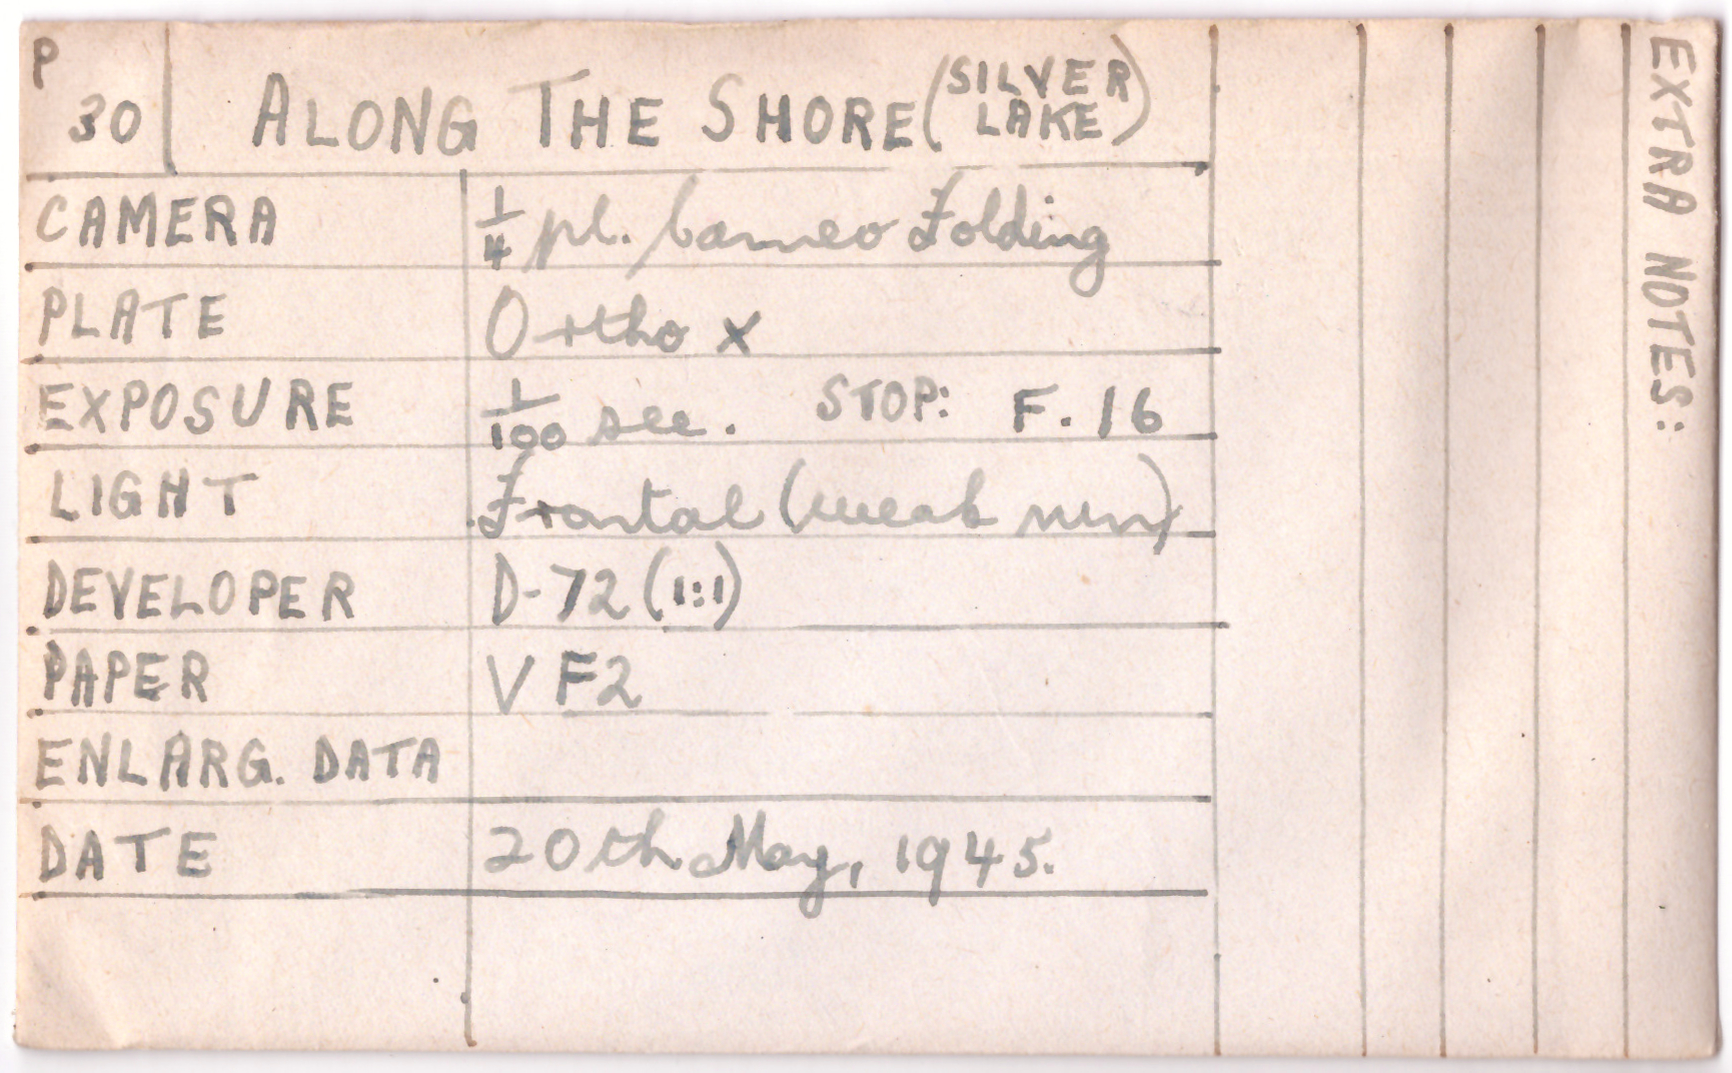 P
30 ALONG THE SHORE (SILVER LAKE)
CAMERA 1/4 pl. Cameo Folding
PLATE Ortho X
EXPOSURE 1/100 sec. STOP: F.16
LIGHT Frontal (weak sun)
DEVELOPER D-72 (1:1)
PAPER VF2
ENLARG. DATA
DATE 20th May, 1945.
EXTRA NOTES: